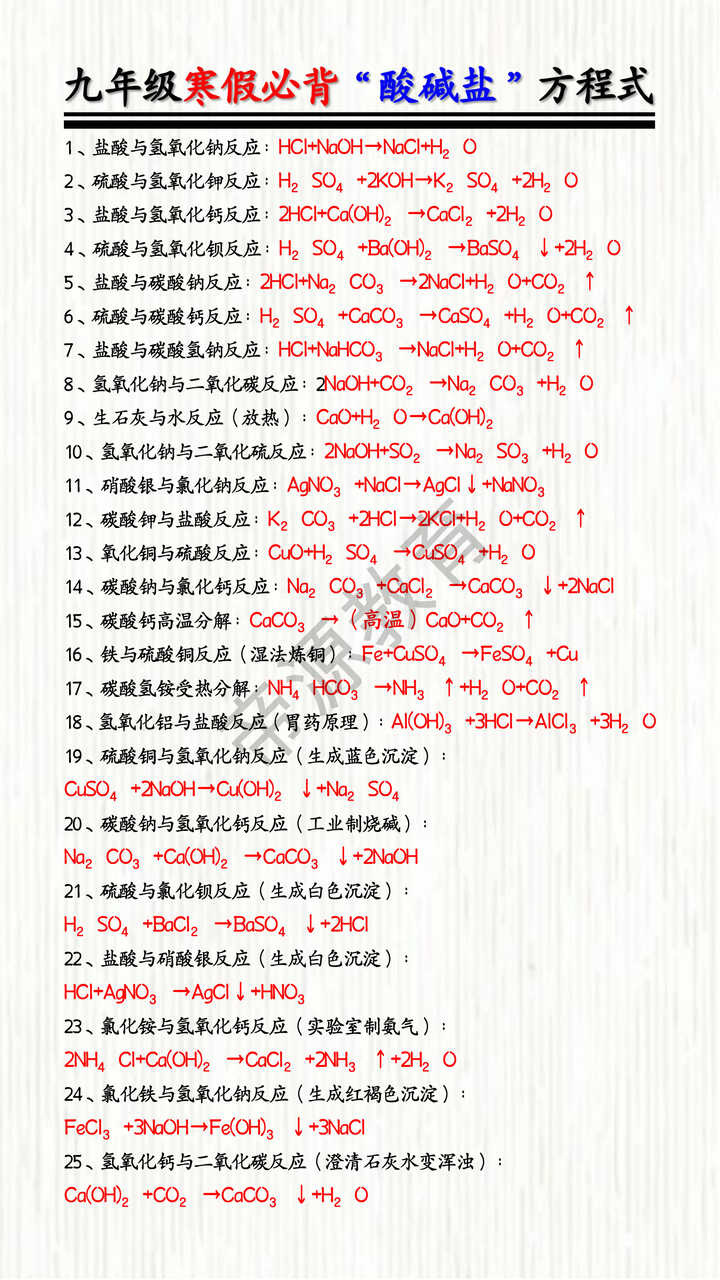 九年级寒假必背“酸碱盐”方程式
1、盐酸与氢氧化钠反应：HCl+NaOH→NaCl+H₂ O
2、硫酸与氢氧化钾反应：H₂ SO₄ +2KOH→K₂ SO₄ +2H₂ O
3、盐酸与氢氧化钙反应：2HCl+Ca(OH)₂ →CaCl₂ +2H₂ O
4、硫酸与氢氧化钡反应：H₂ SO₄ +Ba(OH)₂ →BaSO₄ ↓+2H₂ O
5、盐酸与碳酸钠反应：2HCl+Na₂ CO₃ →2NaCl+H₂ O+CO₂ ↑
6、硫酸与碳酸钙反应：H₂ SO₄ +CaCO₃ →CaSO₄ +H₂ O+CO₂ ↑
7、盐酸与碳酸氢钠反应：HCl+NaHCO₃ →NaCl+H₂ O+CO₂ ↑
8、氢氧化钠与二氧化碳反应：2NaOH+CO₂ →Na₂ CO₃ +H₂ O
9、生石灰与水反应（放热）：CaO+H₂ O→Ca(OH)₂
10、氢氧化钠与二氧化硫反应：2NaOH+SO₂ →Na₂ SO₃ +H₂ O
11、硝酸银与氯化钠反应：AgNO₃ +NaCl→AgCl↓+NaNO₃
12、碳酸钾与盐酸反应：K₂ CO₃ +2HCl→2KCl+H₂ O+CO₂ ↑
13、氧化铜与硫酸反应：CuO+H₂ SO₄ →CuSO₄ +H₂ O
14、碳酸钠与氯化钙反应：Na₂ CO₃ +CaCl₂ →CaCO₃ ↓+2NaCl
15、碳酸钙高温分解：CaCO₃ →（高温）CaO+CO₂ ↑
16、铁与硫酸铜反应（湿法炼铜）：Fe+CuSO₄ →FeSO₄ +Cu
17、碳酸氢铵受热分解：NH₄ HCO₃ →NH₃ ↑+H₂ O+CO₂ ↑
18、氢氧化铝与盐酸反应（胃药原理）：Al(OH)₃ +3HCl→AlCl₃ +3H₂ O
19、硫酸铜与氢氧化钠反应（生成蓝色沉淀）：
CuSO₄ +2NaOH→Cu(OH)₂ ↓+Na₂ SO₄
20、碳酸钠与氢氧化钙反应（工业制烧碱）：
Na₂ CO₃ +Ca(OH)₂ →CaCO₃ ↓+2NaOH
21、硫酸与氯化钡反应（生成白色沉淀）：
H₂ SO₄ +BaCl₂ →BaSO₄ ↓+2HCl
22、盐酸与硝酸银反应（生成白色沉淀）：
HCl+AgNO₃ →AgCl↓+HNO₃
23、氯化铵与氢氧化钙反应（实验室制氨气）：
2NH₄ Cl+Ca(OH)₂ →CaCl₂ +2NH₃ ↑+2H₂ O
24、氯化铁与氢氧化钠反应（生成红褐色沉淀）：
FeCl₃ +3NaOH→Fe(OH)₃ ↓+3NaCl
25、氢氧化钙与二氧化碳反应（澄清石灰水变浑浊）：
Ca(OH)₂ +CO₂ →CaCO₃ ↓+H₂ O
帝源教育